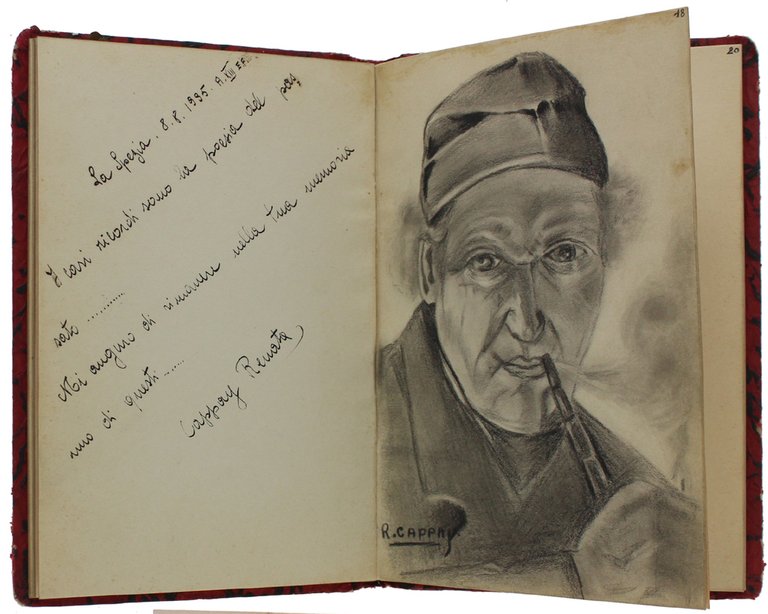 La Spezia. 8.8.1935. A. XIII E.F.
I cari ricordi sono la poesia del pas
sato ............
Mi auguro di rimanere nella tua memoria
uno di questi ......
Cappay Renata
18
20
R. CAPPAY.